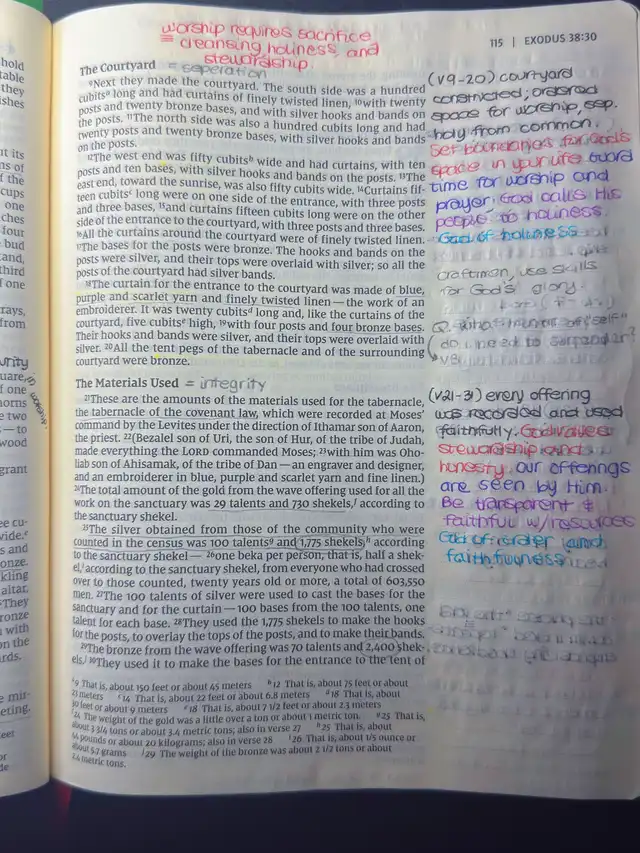 worship requires sacrifice
= cleansing, holiness, and
stewardship.
115 | EXODUS 38:30
The Courtyard = seperation
⁹Next they made the courtyard. The south side was a hundred
cubitsᵃ long and had curtains of finely twisted linen, ¹⁰with twenty
posts and twenty bronze bases, and with silver hooks and bands on
the posts. ¹¹The north side was also a hundred cubits long and had
twenty posts and twenty bronze bases, with silver hooks and bands
on the posts.
¹²The west end was fifty cubitsᵇ wide and had curtains, with ten
posts and ten bases, with silver hooks and bands on the posts. ¹³The
east end, toward the sunrise, was also fifty cubits wide. ¹⁴Curtains fif-
teen cubitsᶜ long were on one side of the entrance, with three posts
and three bases, ¹⁵and curtains fifteen cubits long were on the other
side of the entrance to the courtyard, with three posts and three bases.
¹⁶All the curtains around the courtyard were of finely twisted linen.
¹⁷The bases for the posts were bronze. The hooks and bands on the
posts were silver, and their tops were overlaid with silver; so all the
posts of the courtyard had silver bands.
¹⁸The curtain for the entrance to the courtyard was made of blue,
purple and scarlet yarn and finely twisted linen—the work of an
embroiderer. It was twenty cubitsᵈ long and, like the curtains of the
courtyard, five cubitsᵉ high, ¹⁹with four posts and four bronze bases.
Their hooks and bands were silver, and their tops were overlaid with
silver. ²⁰All the tent pegs of the tabernacle and of the surrounding
courtyard were bronze.
The Materials Used = integrity
²¹These are the amounts of the materials used for the tabernacle,
the tabernacle of the covenant law, which were recorded at Moses'
command by the Levites under the direction of Ithamar son of Aaron,
the priest. ²²(Bezalel son of Uri, the son of Hur, of the tribe of Judah,
made everything the LORD commanded Moses; ²³with him was Oho-
liab son of Ahisamak, of the tribe of Dan—an engraver and designer,
and an embroiderer in blue, purple and scarlet yarn and fine linen.)
²⁴The total amount of the gold from the wave offering used for all the
work on the sanctuary was 29 talents and 730 shekels,ᶠ according to
the sanctuary shekel.
²⁵The silver obtained from those of the community who were
counted in the census was 100 talentsᵍ and 1,775 shekels,ʰ according
to the sanctuary shekel— ²⁶one beka per person, that is, half a shek-
el,ⁱ according to the sanctuary shekel, from everyone who had crossed
over to those counted, twenty years old or more, a total of 603,550
men. ²⁷The 100 talents of silver were used to cast the bases for the
sanctuary and for the curtain—100 bases from the 100 talents, one
talent for each base. ²⁸They used the 1,775 shekels to make the hooks
for the posts, to overlay the tops of the posts, and to make their bands.
²⁹The bronze from the wave offering was 70 talents and 2,400 shek-
els.ʲ ³⁰They used it to make the bases for the entrance to the tent of
ᵃ9 That is, about 150 feet or about 45 meters ᵇ12 That is, about 75 feet or about
23 meters ᶜ14 That is, about 22 feet or about 6.8 meters ᵈ18 That is, about
30 feet or about 9 meters ᵉ18 That is, about 7 1/2 feet or about 2.3 meters
ᶠ24 The weight of the gold was a little over a ton or about 1 metric ton. ᵍ25 That is,
about 3 3/4 tons or about 3.4 metric tons; also in verse 27 ʰ25 That is, about
44 pounds or about 20 kilograms; also in verse 28 ⁱ26 That is, about 1/5 ounce or
about 5.7 grams ʲ29 The weight of the bronze was about 2 1/2 tons or about
2.4 metric tons.
(v9-20) courtyard
constructed; ordered
space for worship, sep.
holy from common.
Set boundaries for God's
space in your life Guard
time for worship and
prayer. God calls His
people to holiness.
God of holiness
craftman, use skills
for God's glory.
Q. What of "self"
do I need to surrender?
v8
(v21-31) every offering
was recorded and used
faithfully. God values
stewardship and
honesty. our offerings
are seen by Him.
Be transparent &
faithful w/resources
God of order and
faithfulness
in worship.